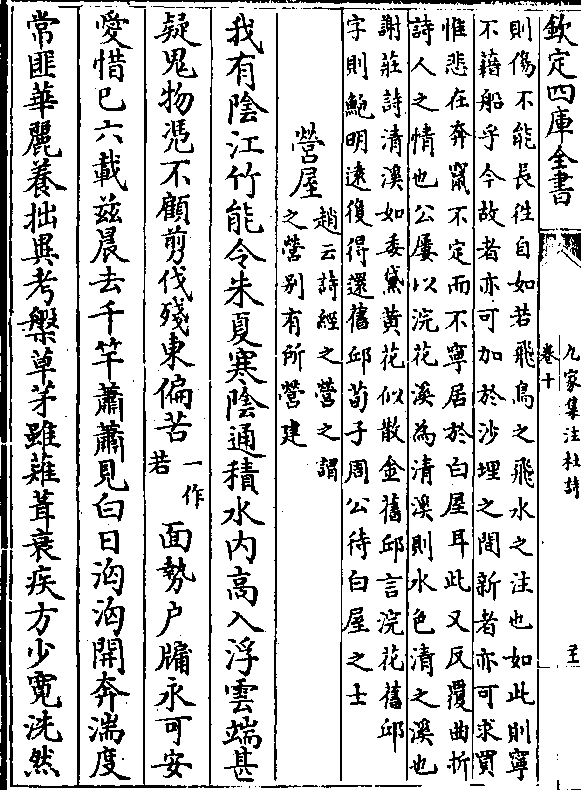 欽定四庫全書
九家集注杜詩
卷十
則傷不能長往自如若飛鳥之飛水之注也如此則寧
不藉船乎今故者亦可加於沙埋之間新者亦可求買
惟悲在奔竄不定而不寧居於白屋耳此又反覆曲折
詩人之情也公屢以浣花溪為清溪則水色清之溪也
謝莊詩清溪如委黛黄花似散金舊邱言浣花舊邱
字則鮑明逺復得還舊邱荀子周公待白屋之士
營屋
趙云詩經之營之謂
之營别有所營建
我有陰江竹能令朱夏寒陰通積水内高入浮雲端甚
疑鬼物憑不顧剪伐殘東偏苦
一作
若
面勢户牖永可安
愛惜已六載兹晨去千竿蕭蕭見白日洶洶開奔湍度
常匪華麗養拙異考槃草茅雖薙葺衰疾方少寛洗然